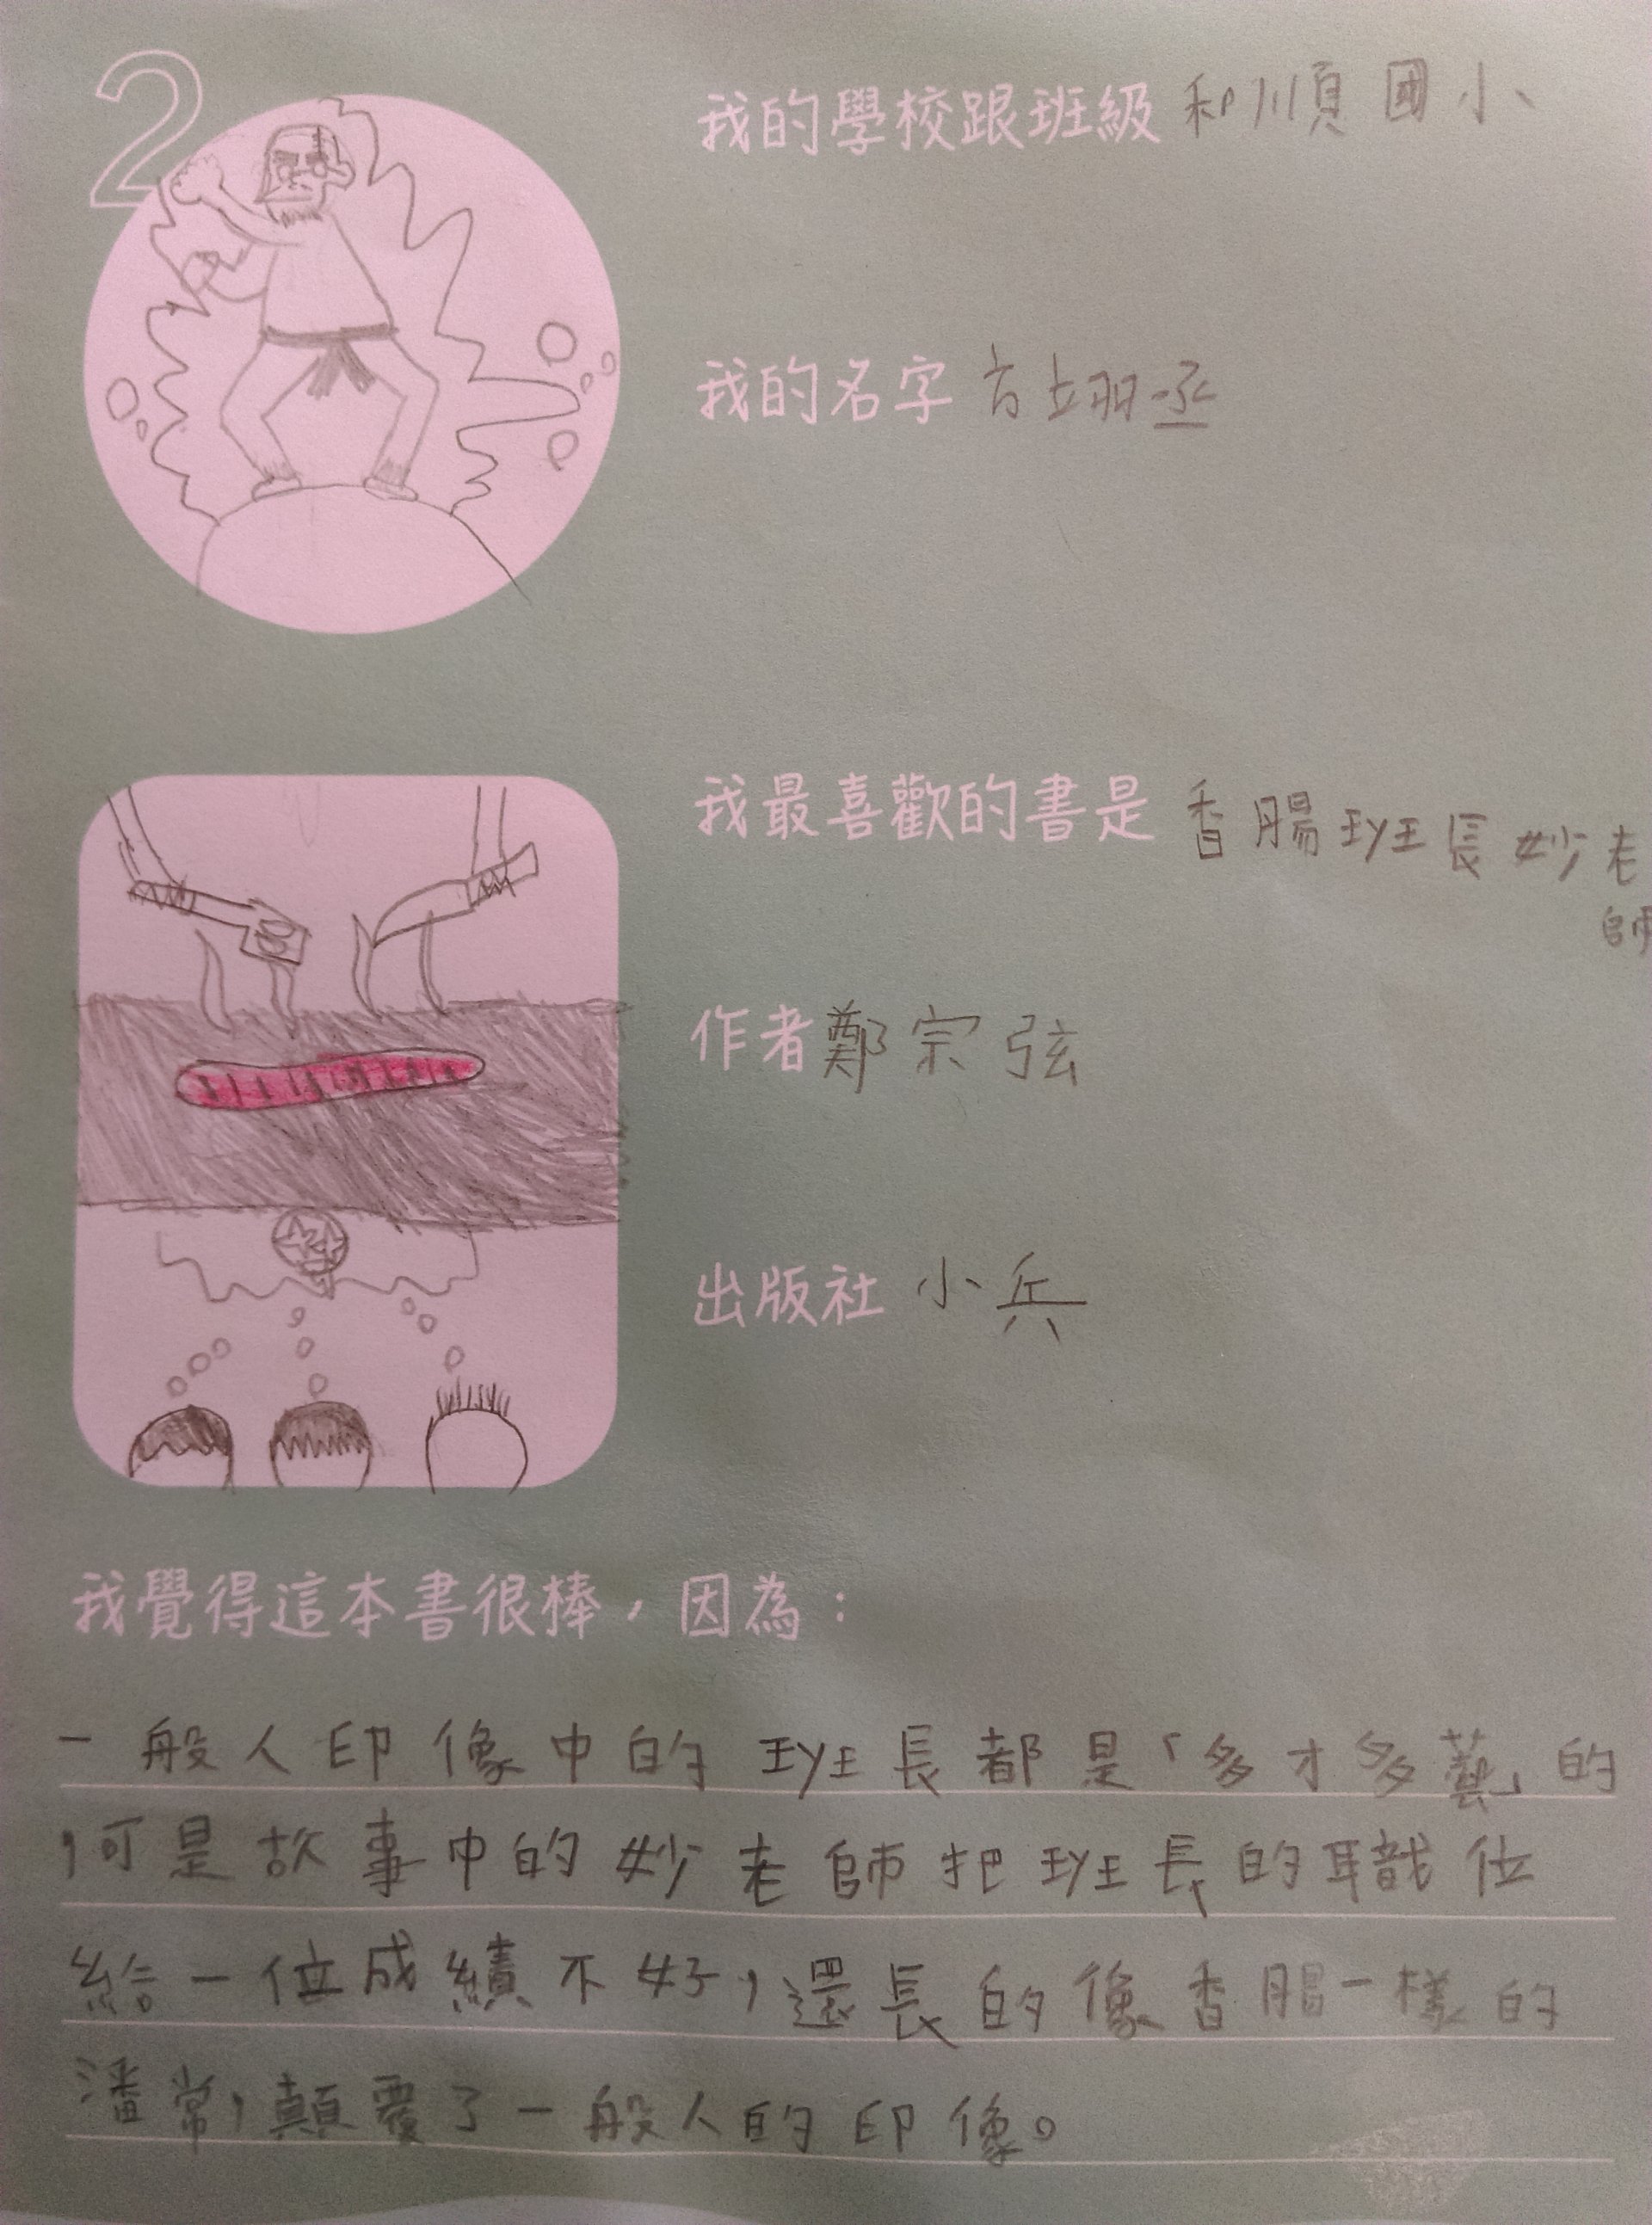 2
我的學校跟班級 和順國小
我的名字 方翊丞
我最喜歡的書是 香腸班長妙老
師
作者 鄭宗弦
出版社 小兵
我覺得這本書很棒，因為：
一般人印像中的班長都是「多才多藝」的
，可是故事中的妙老師把班長的職位
給一位成績不好，還長的像香腸一樣的
潘常，顛覆了一般人的印像。